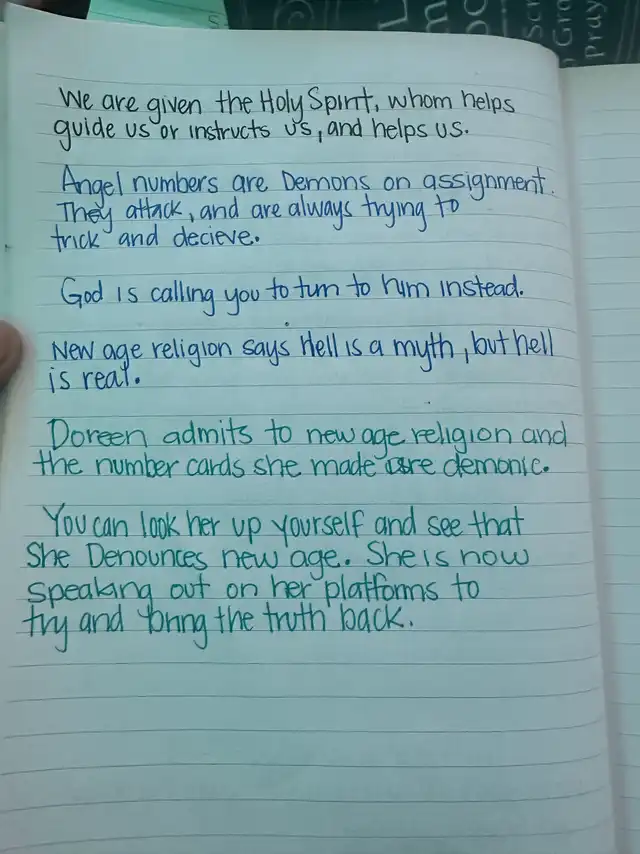 We are given the Holy Spirit, whom helps
guide us or instructs us, and helps us.
Angel numbers are Demons on assignment.
They attack, and are always trying to
trick and decieve.
God is calling you to turn to him instead.
New age religion says Hell is a myth, but hell
is real.
Doreen admits to new age religion and
the number cards she made are demonic.
You can look her up yourself and see that
She Denounces new age. She is now
speaking out on her platforms to
try and bring the truth back.
Pray